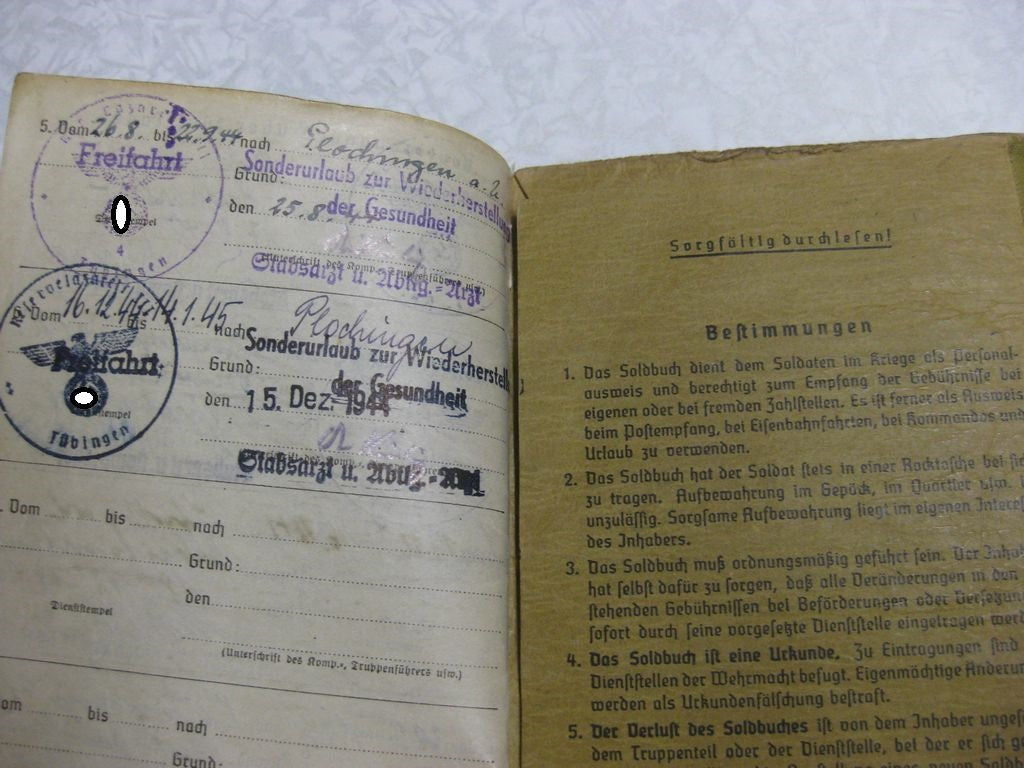 5. Vom 26.8. bis 22.9.44 nach Plochingen a. N.
Freifahrt
Grund: Sonderurlaub zur Wiederherstellung
der Gesundheit
den 25.8
Dienststempel
4
Tübingen
Stabsarzt u. Abtlg.-Arzt
Reservelazarett
Vom 16.12.44 bis 14.1.45 nach Plochingen
Freifahrt
Grund: Sonderurlaub zur Wiederherstell
der Gesundheit
den 15. Dez. 1944
Tübingen
Stabsarzt u. Abtlg.-Arzt
. Vom bis nach
Grund:
den
Dienststempel
(Unterschrift des Komp.-, Truppenführers usw.)
om bis nach
Grund:
Sorgfältig durchlesen!
Bestimmungen
1. Das Soldbuch dient dem Soldaten im Kriege als Personal-
ausweis und berechtigt zum Empfang der Gebührnisse bei
eigenen oder bei fremden Zahlstellen. Es ist ferner als Ausweis
beim Postempfang, bei Eisenbahnfahrten, bei Kommandos und
Urlaub zu verwenden.
2. Das Soldbuch hat der Soldat stets in einer Rocktasche bei sich
zu tragen. Aufbewahrung im Gepäck, im Quartier usw.
unzulässig. Sorgsame Aufbewahrung liegt im eigenen Interes
des Inhabers.
3. Das Soldbuch muß ordnungsmäßig geführt sein. Der Inhab
hat selbst dafür zu sorgen, daß alle Veränderungen in den
stehenden Gebührnissen bei Beförderungen oder Versetzun
sofort durch seine vorgesetzte Dienststelle eingetragen werd
4. Das Soldbuch ist eine Urkunde. Zu Eintragungen sind
Dienststellen der Wehrmacht befugt. Eigenmächtige Änderun
werden als Urkundenfälschung bestraft.
5. Der Verlust des Soldbuches ist von dem Inhaber unges
dem Truppenteil oder der Dienststelle, bei der er sich ge